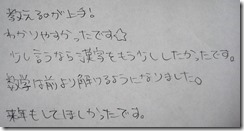 教えるのが上手!
わかりやすかったです☆
少し言うなら漢字をもう少ししたかったです。
数学は前より解けるようになりました。
来年もしてほしかったです。